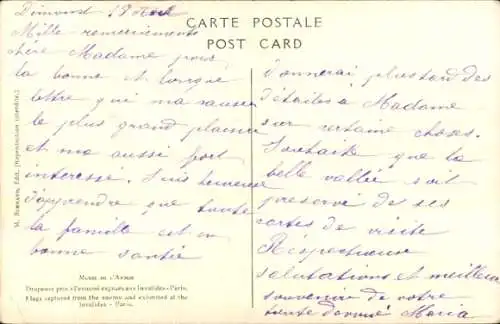 CARTE POSTALE
POST CARD
Mille remerciements
chère Madame pour
la bonne et longue
lettre qui m'a causée
le plus grand plaisir
et m'a aussi fort
interessé. Suis heureuse
d'apprendre que toute
la famille est en
bonne santée
MUSÉE DE L'ARMÉE
Drapeaux pris à l'ennemi exposés aux Invalides - Paris.
Flags captured from the enemy and exhibited at the
Invalides - Paris.
Édit. (Reproduction interdite.)
donnerai plus tard des
détailes à Madame
sur certaine choses.
Souhaite que la
belle vallée soit
preservé de ses
sortes de visite
Respectueuse
salutations et meilleur
souvenir de votre
toute dévoué Maria